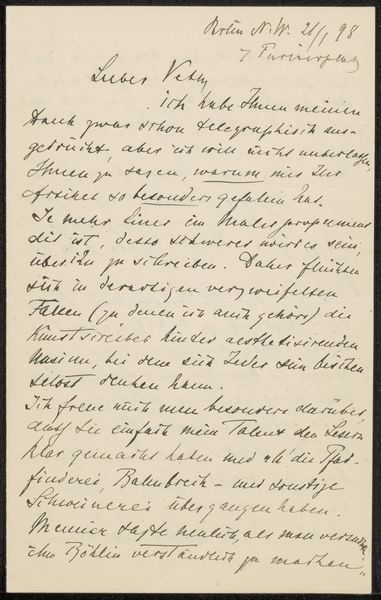 Berlin N.W. 21/1 98
7 Pariserplatz
Lieber Veth,
ich habe Ihnen meinen
Dank zwar schon telegraphisch aus-
gedrückt, aber ich will nicht unterlassen,
Ihnen zu sagen, warum mir Ihr
Artikel so besonders gefallen hat.
Je mehr Einer im Maler
ist, desto schwerer wird es sein,
über ihn zu schreiben. Daher flüchten
sich in derartigen verzweifelten
Fällen (zu denen ich auch gehöre) die
Kunstschreiber hinter aesthetisirenden
Unsinn, bei dem sich Jeder sein bischen
selbst denken kann.
Ich freue mich nun besonders darüber,
dass Sie einfach mein Talent den Lesern
klar gemacht haben und die Pfad-
finderei, Bahnbrech- und sonstige
Schweinerei übergangen haben.
Meunier sagte neulich, als man versuchte
ihm Böklin verständlich zu machen